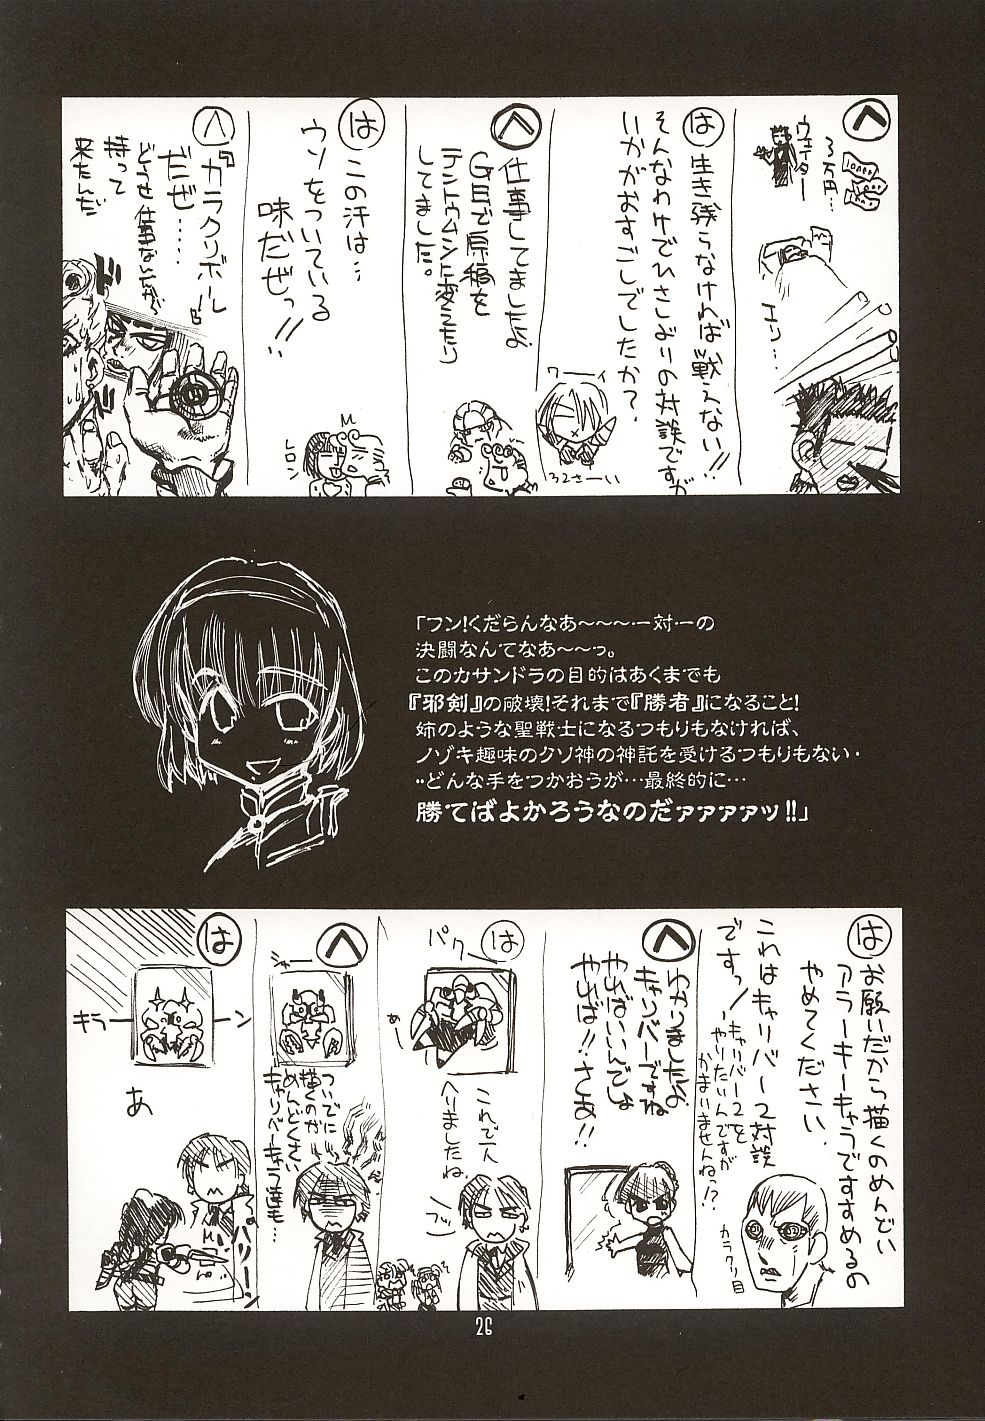 へ
3万円…
ウェイター
エリ…
は
生き残らなければ戦えない!!
そんなわけでひさしぶりの対談ですが
いかがおすごしでしたか？
へ
仕事してましたよ
GEで原稿を
テントウムシに変えたり
してました。
ワーイ
132さーい
は
この汗は…
ウソをついている
味だぜっ!!
レロン
へ
『ガラクリボール』
だぜ……
どうせ仕事ないんだから
持って
来たんだ
ドド
「フン!くだらんなあ～～～一対一の
決闘なんてなあ～～っ。
このカサンドラの目的はあくまでも
『邪剣』の破壊!それまで『勝者』になること!
姉のような聖戦士になるつもりもなければ、
ノゾキ趣味のクソ神の神託を受けるつもりもない・
・・どんな手をつかおうが…最終的に…
勝てばよかろうなのだァァァァッ!!」
は
お願いだから描くのめんどい
アラーキーキャラですすめるの
やめてください
これはキャリバー2対談
ですっ!
キャリバー2を
やりたいんですが
かまいませんねっ!?
カラクリ目
へ
わかりましたよ
キャリバーですね
やればいいんでしょ
やれば!!さあ!!
は
パク
めー
これで一人
へりましたね
フッ
へ
ジャーー
ついでに
描くのが
めんどくさい
キャリバーキャラ達も…
は
キラーーン
あ
バリーン
26